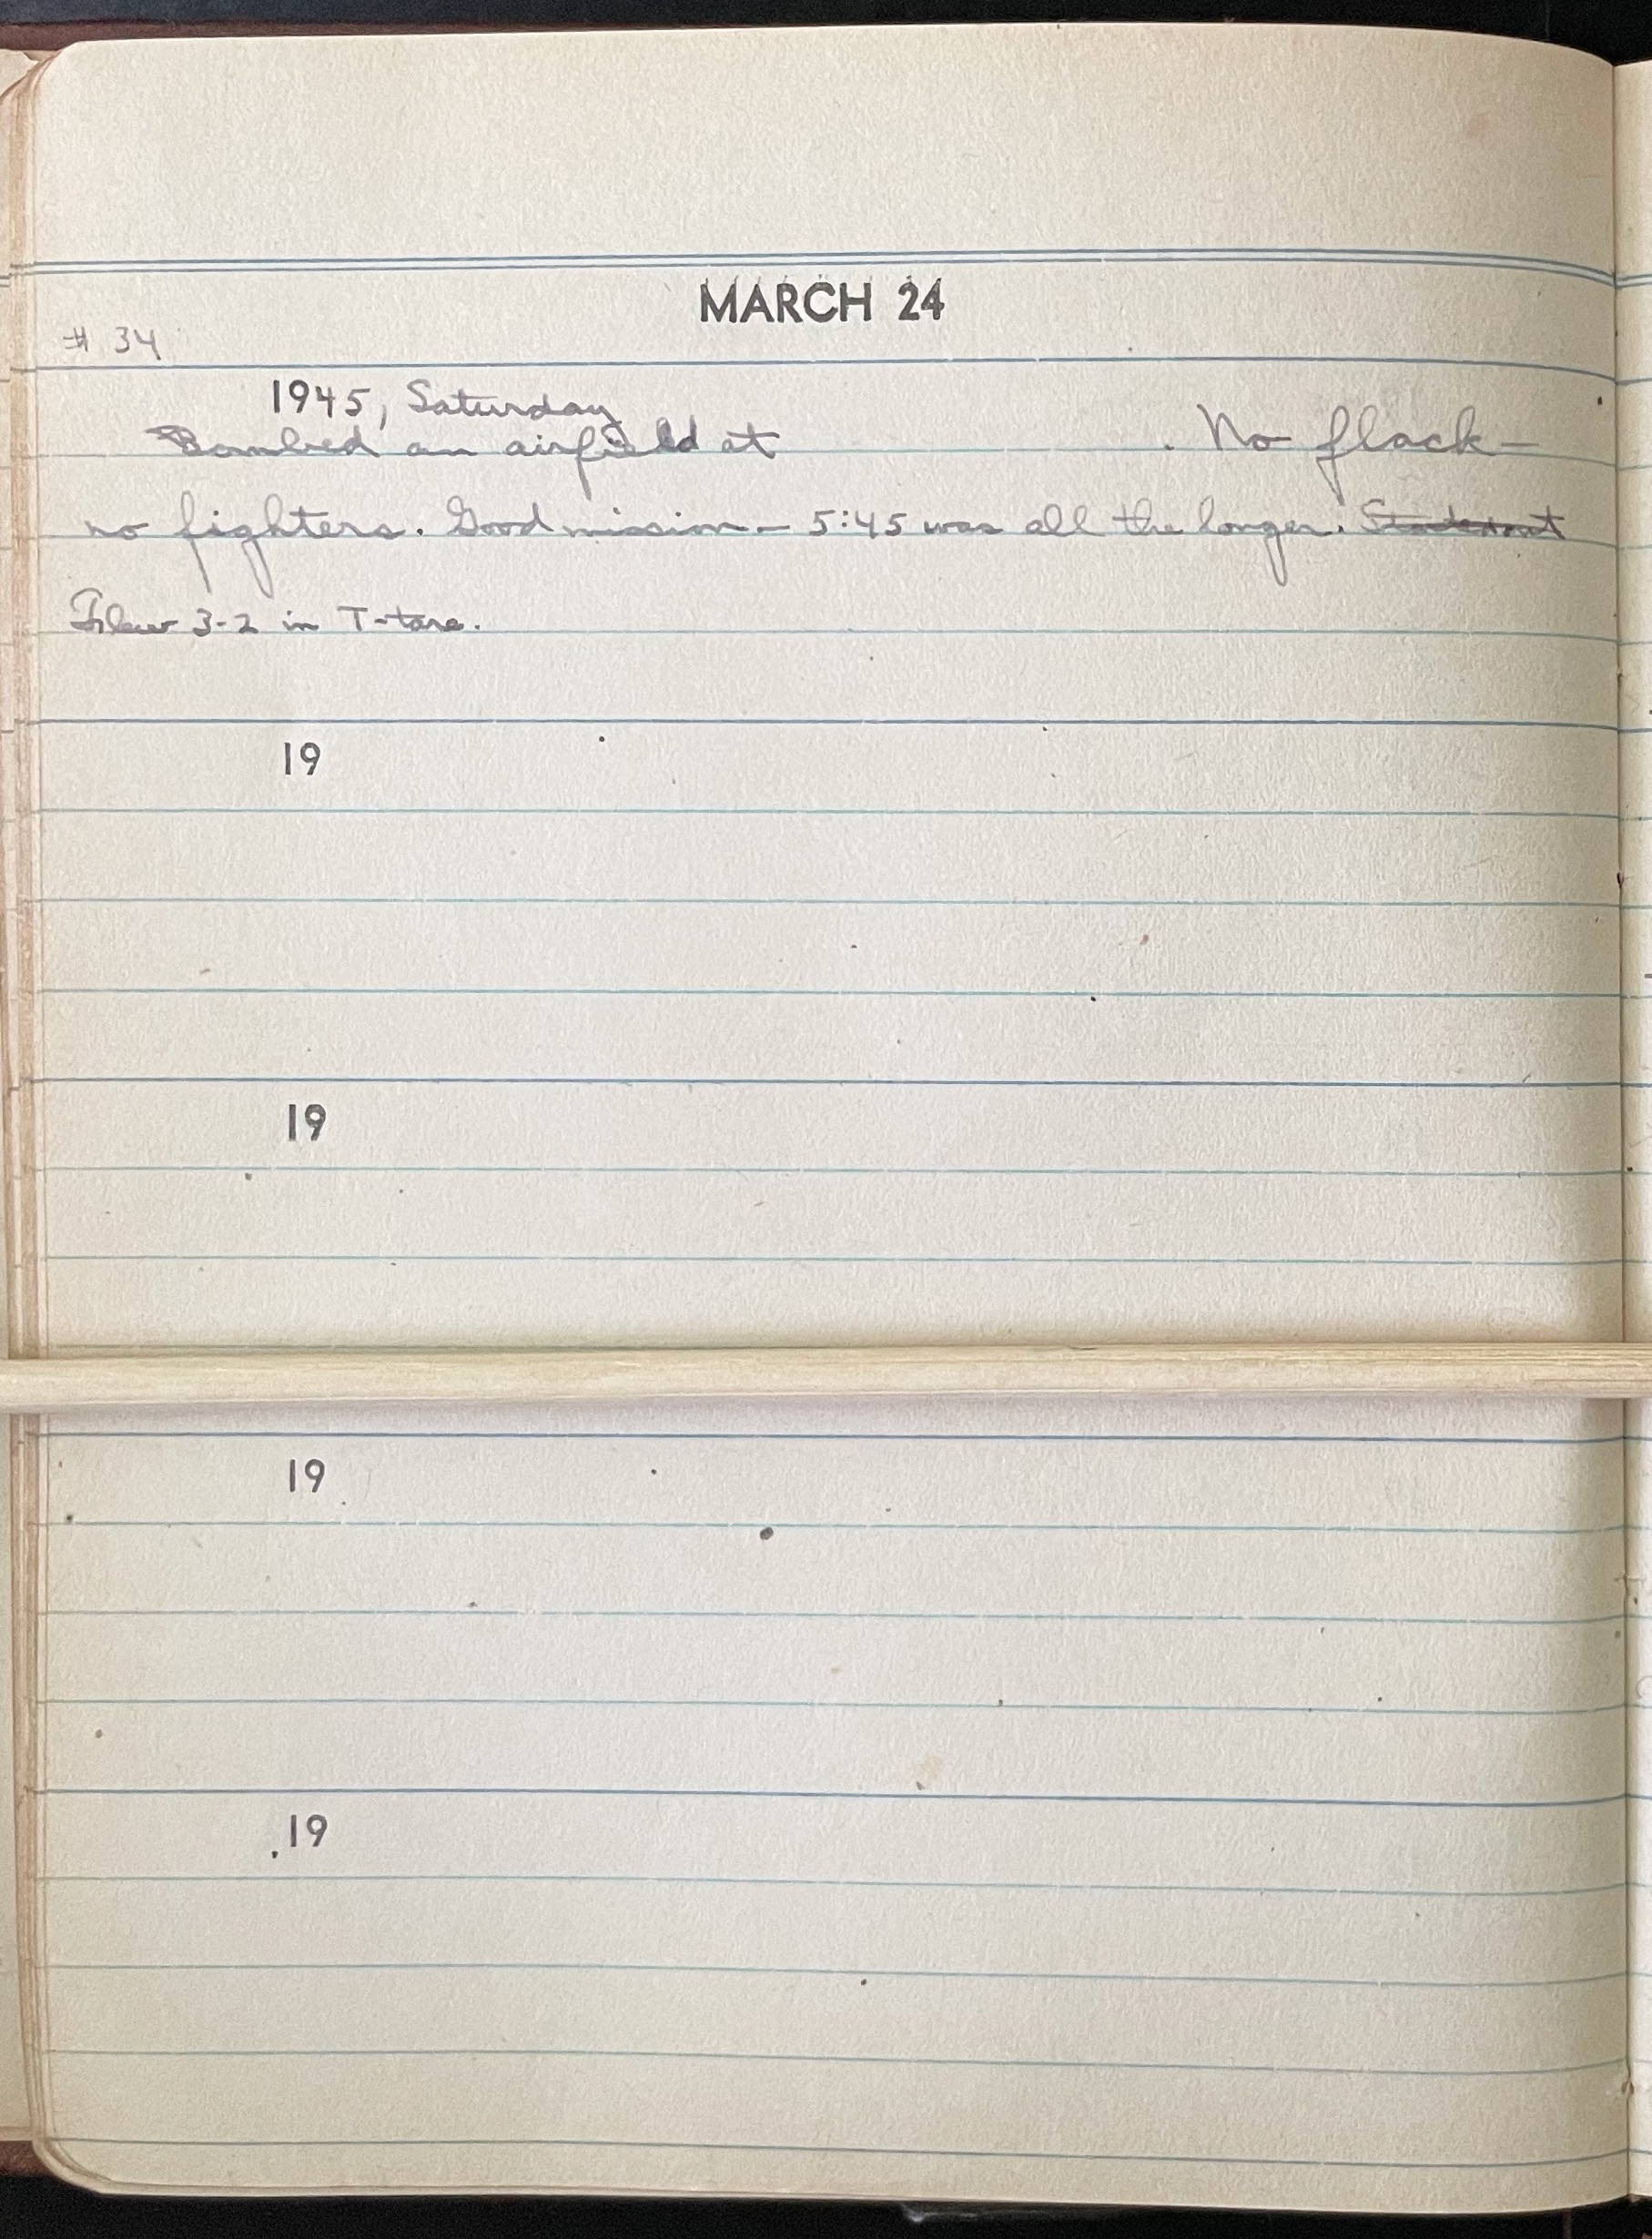 MARCH 24
# 34
1945, Saturday
Bombed an airfield at . No flack –
no fighters. Good mission – 5:45 was all the longer.
Flew 3-2 in T-tare.
19
19
19
19